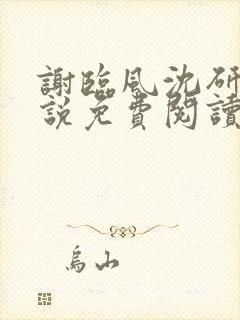 謝臨風沈研
說免費閱讀
烏山